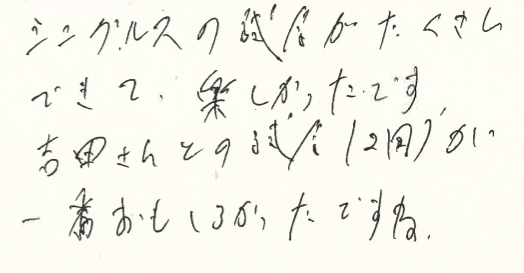 シングルスの試合がたくさん
できて、楽しかったです。
吉田さんとの試合(2回)が
一番おもしろかったですね.